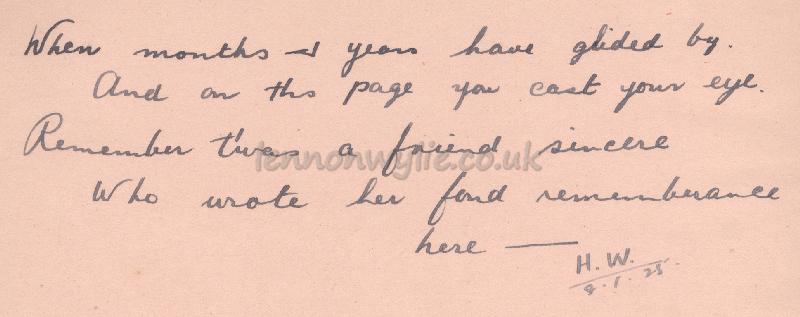 When months & years have glided by.
And on ths page you cast your eye.
Remember t'was a friend sincere
lennonwylie.co.uk
Who wrote her fond rememberance
here —
H. W.
9.1.25.